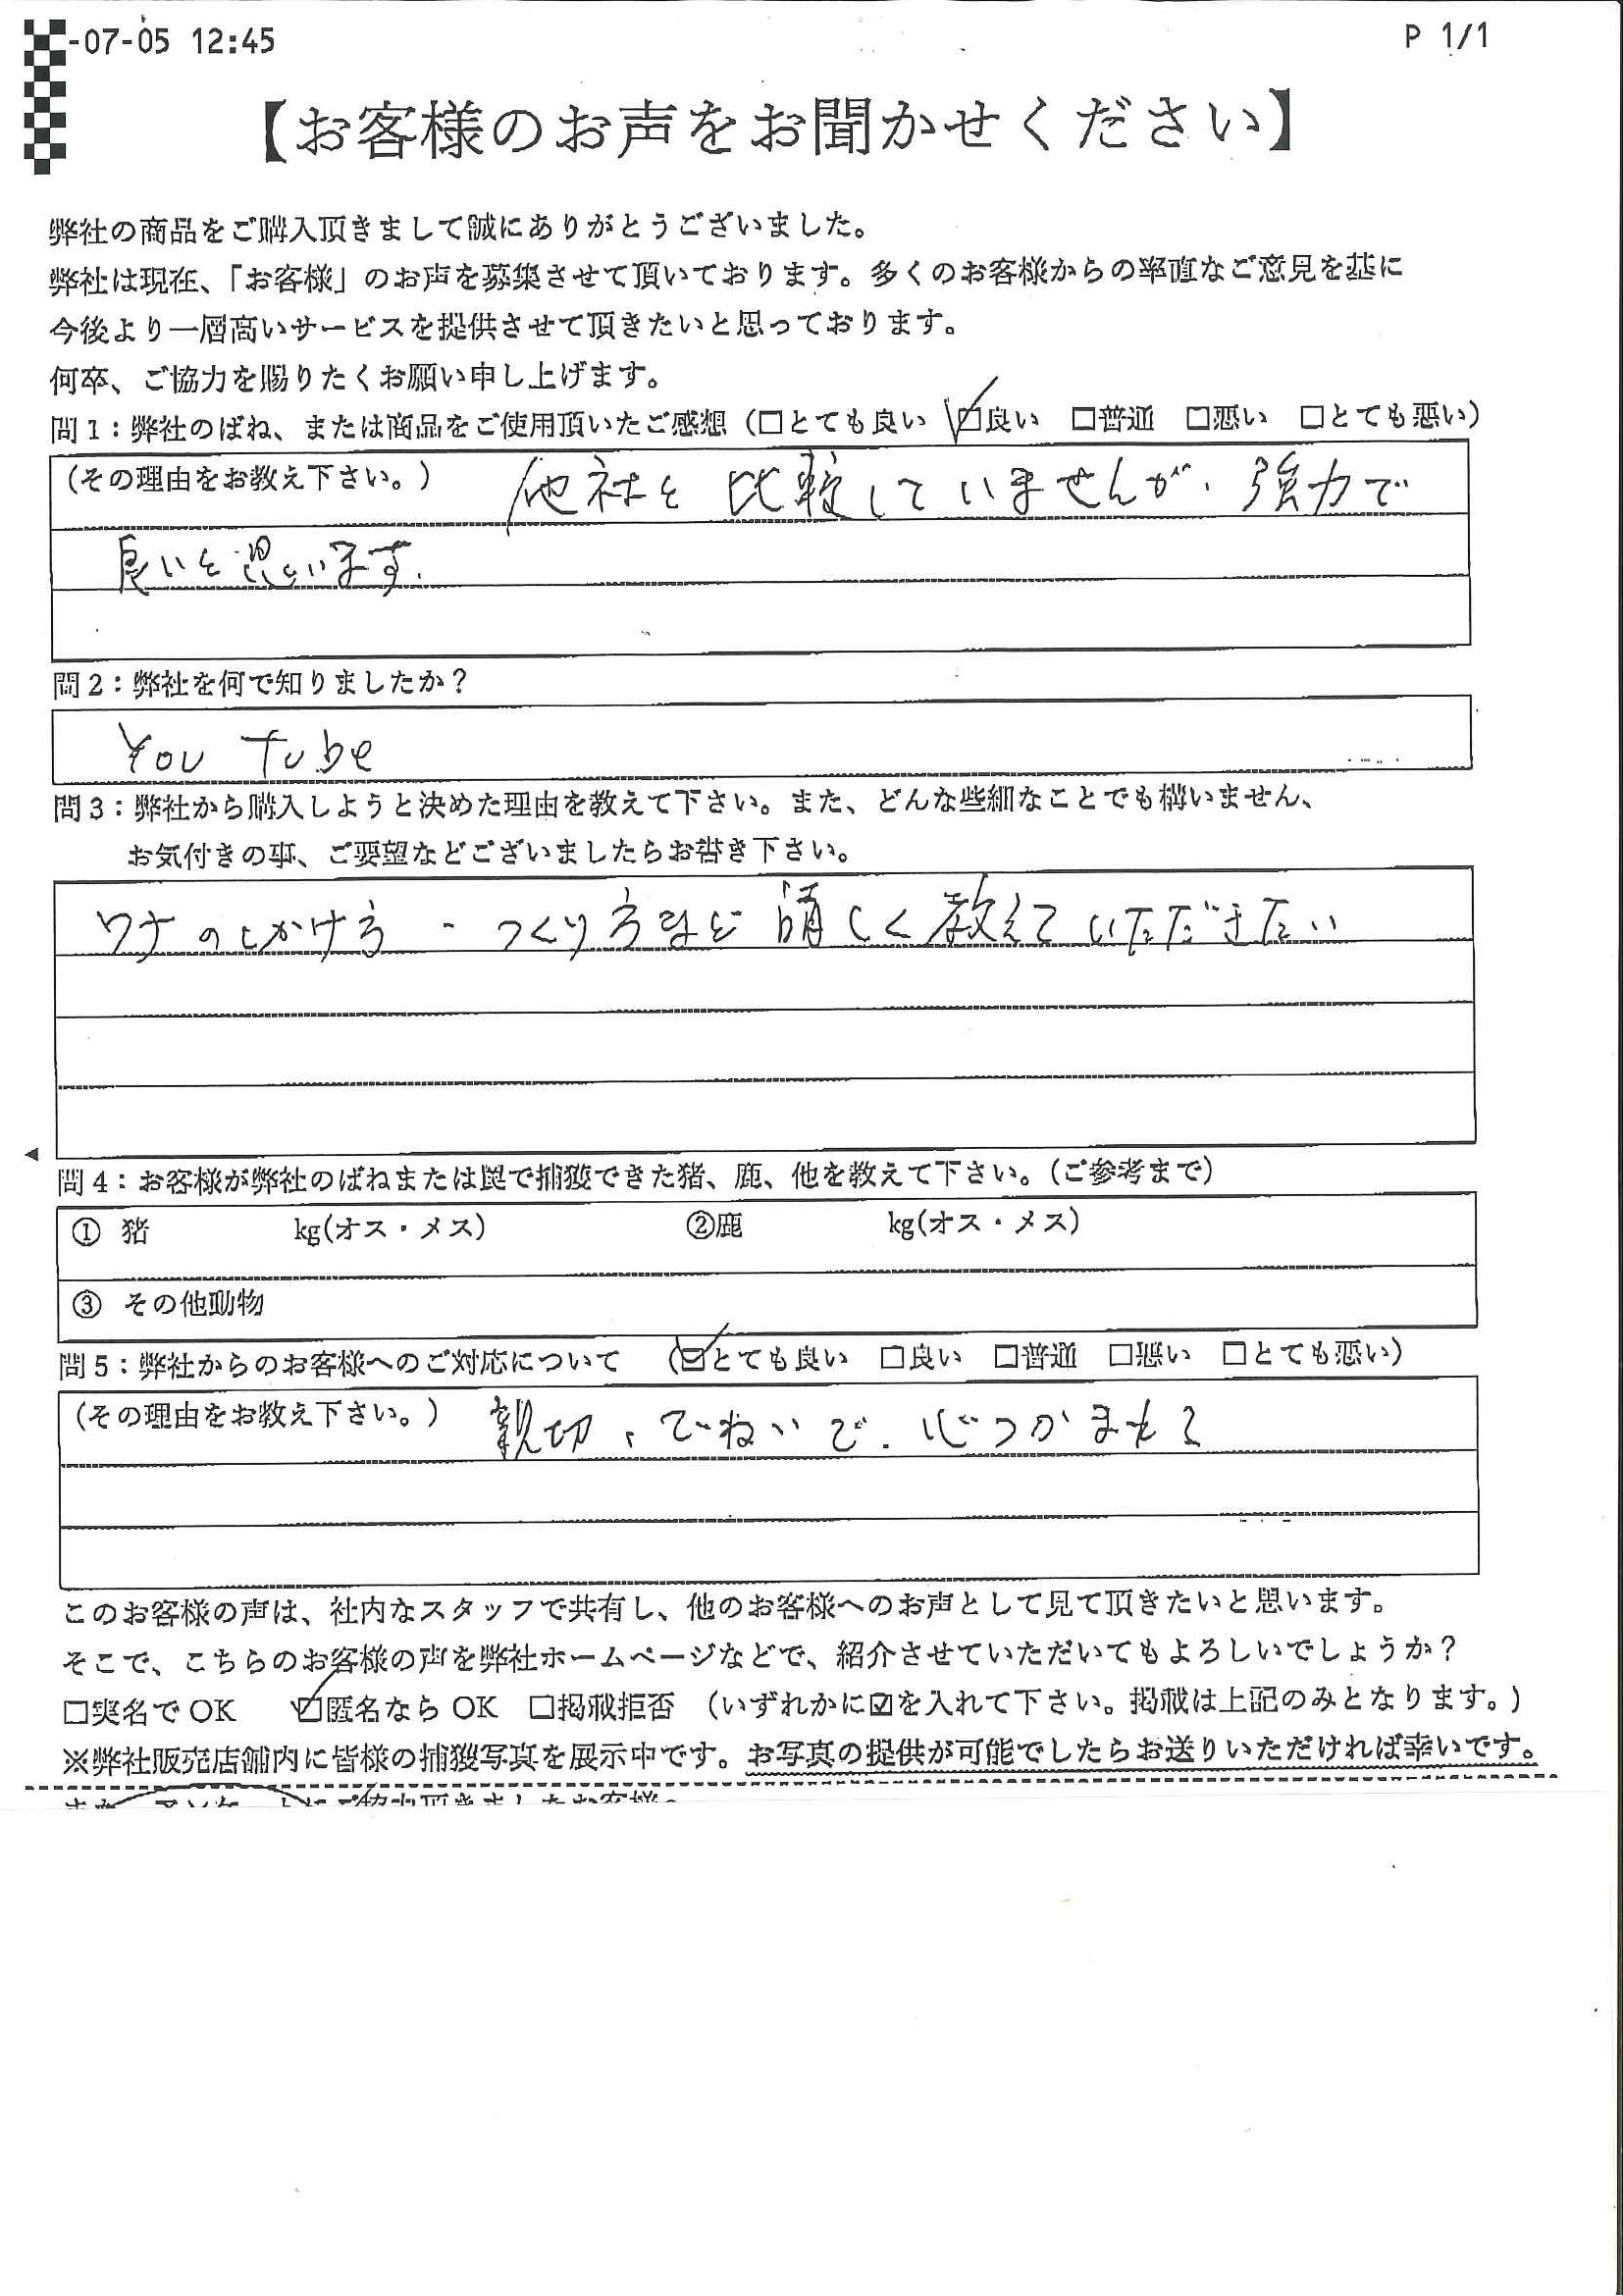 -07-05 12:45 P 1/1
【お客様のお声をお聞かせください】
弊社の商品をご購入頂きまして誠にありがとうございました。
弊社は現在、「お客様」のお声を募集させて頂いております。多くのお客様からの率直なご意見を基に
今後より一層高いサービスを提供させて頂きたいと思っております。
何卒、ご協力を賜りたくお願い申し上げます。
問1：弊社のばね、または商品をご使用頂いたご感想（□とても良い ☑良い □普通 □悪い □とても悪い）
（その理由をお教え下さい。） 他社と比較していませんが、強力で
良いと思います.
問2：弊社を何で知りましたか？
You Tube
問3：弊社から購入しようと決めた理由を教えて下さい。また、どんな些細なことでも構いません、
お気付きの事、ご要望などございましたらお書き下さい。
ワナのしかけ方・つくり方など 詳しく教えていただきたい
問4：お客様が弊社のばねまたは罠で捕獲できた猪、鹿、他を教えて下さい。（ご参考まで）
① 猪 kg(オス・メス) ②鹿 kg(オス・メス)
③ その他動物
問5：弊社からのお客様へのご対応について （☑とても良い □良い □普通 □悪い □とても悪い）
（その理由をお教え下さい。） 親切、ていねいで、
このお客様の声は、社内なスタッフで共有し、他のお客様へのお声として見て頂きたいと思います。
そこで、こちらのお客様の声を弊社ホームページなどで、紹介させていただいてもよろしいでしょうか？
□実名でOK ☑匿名ならOK □掲載拒否 （いずれかに☑を入れて下さい。掲載は上記のみとなります。）
※弊社販売店舗内に皆様の捕獲写真を展示中です。お写真の提供が可能でしたらお送りいただければ幸いです。